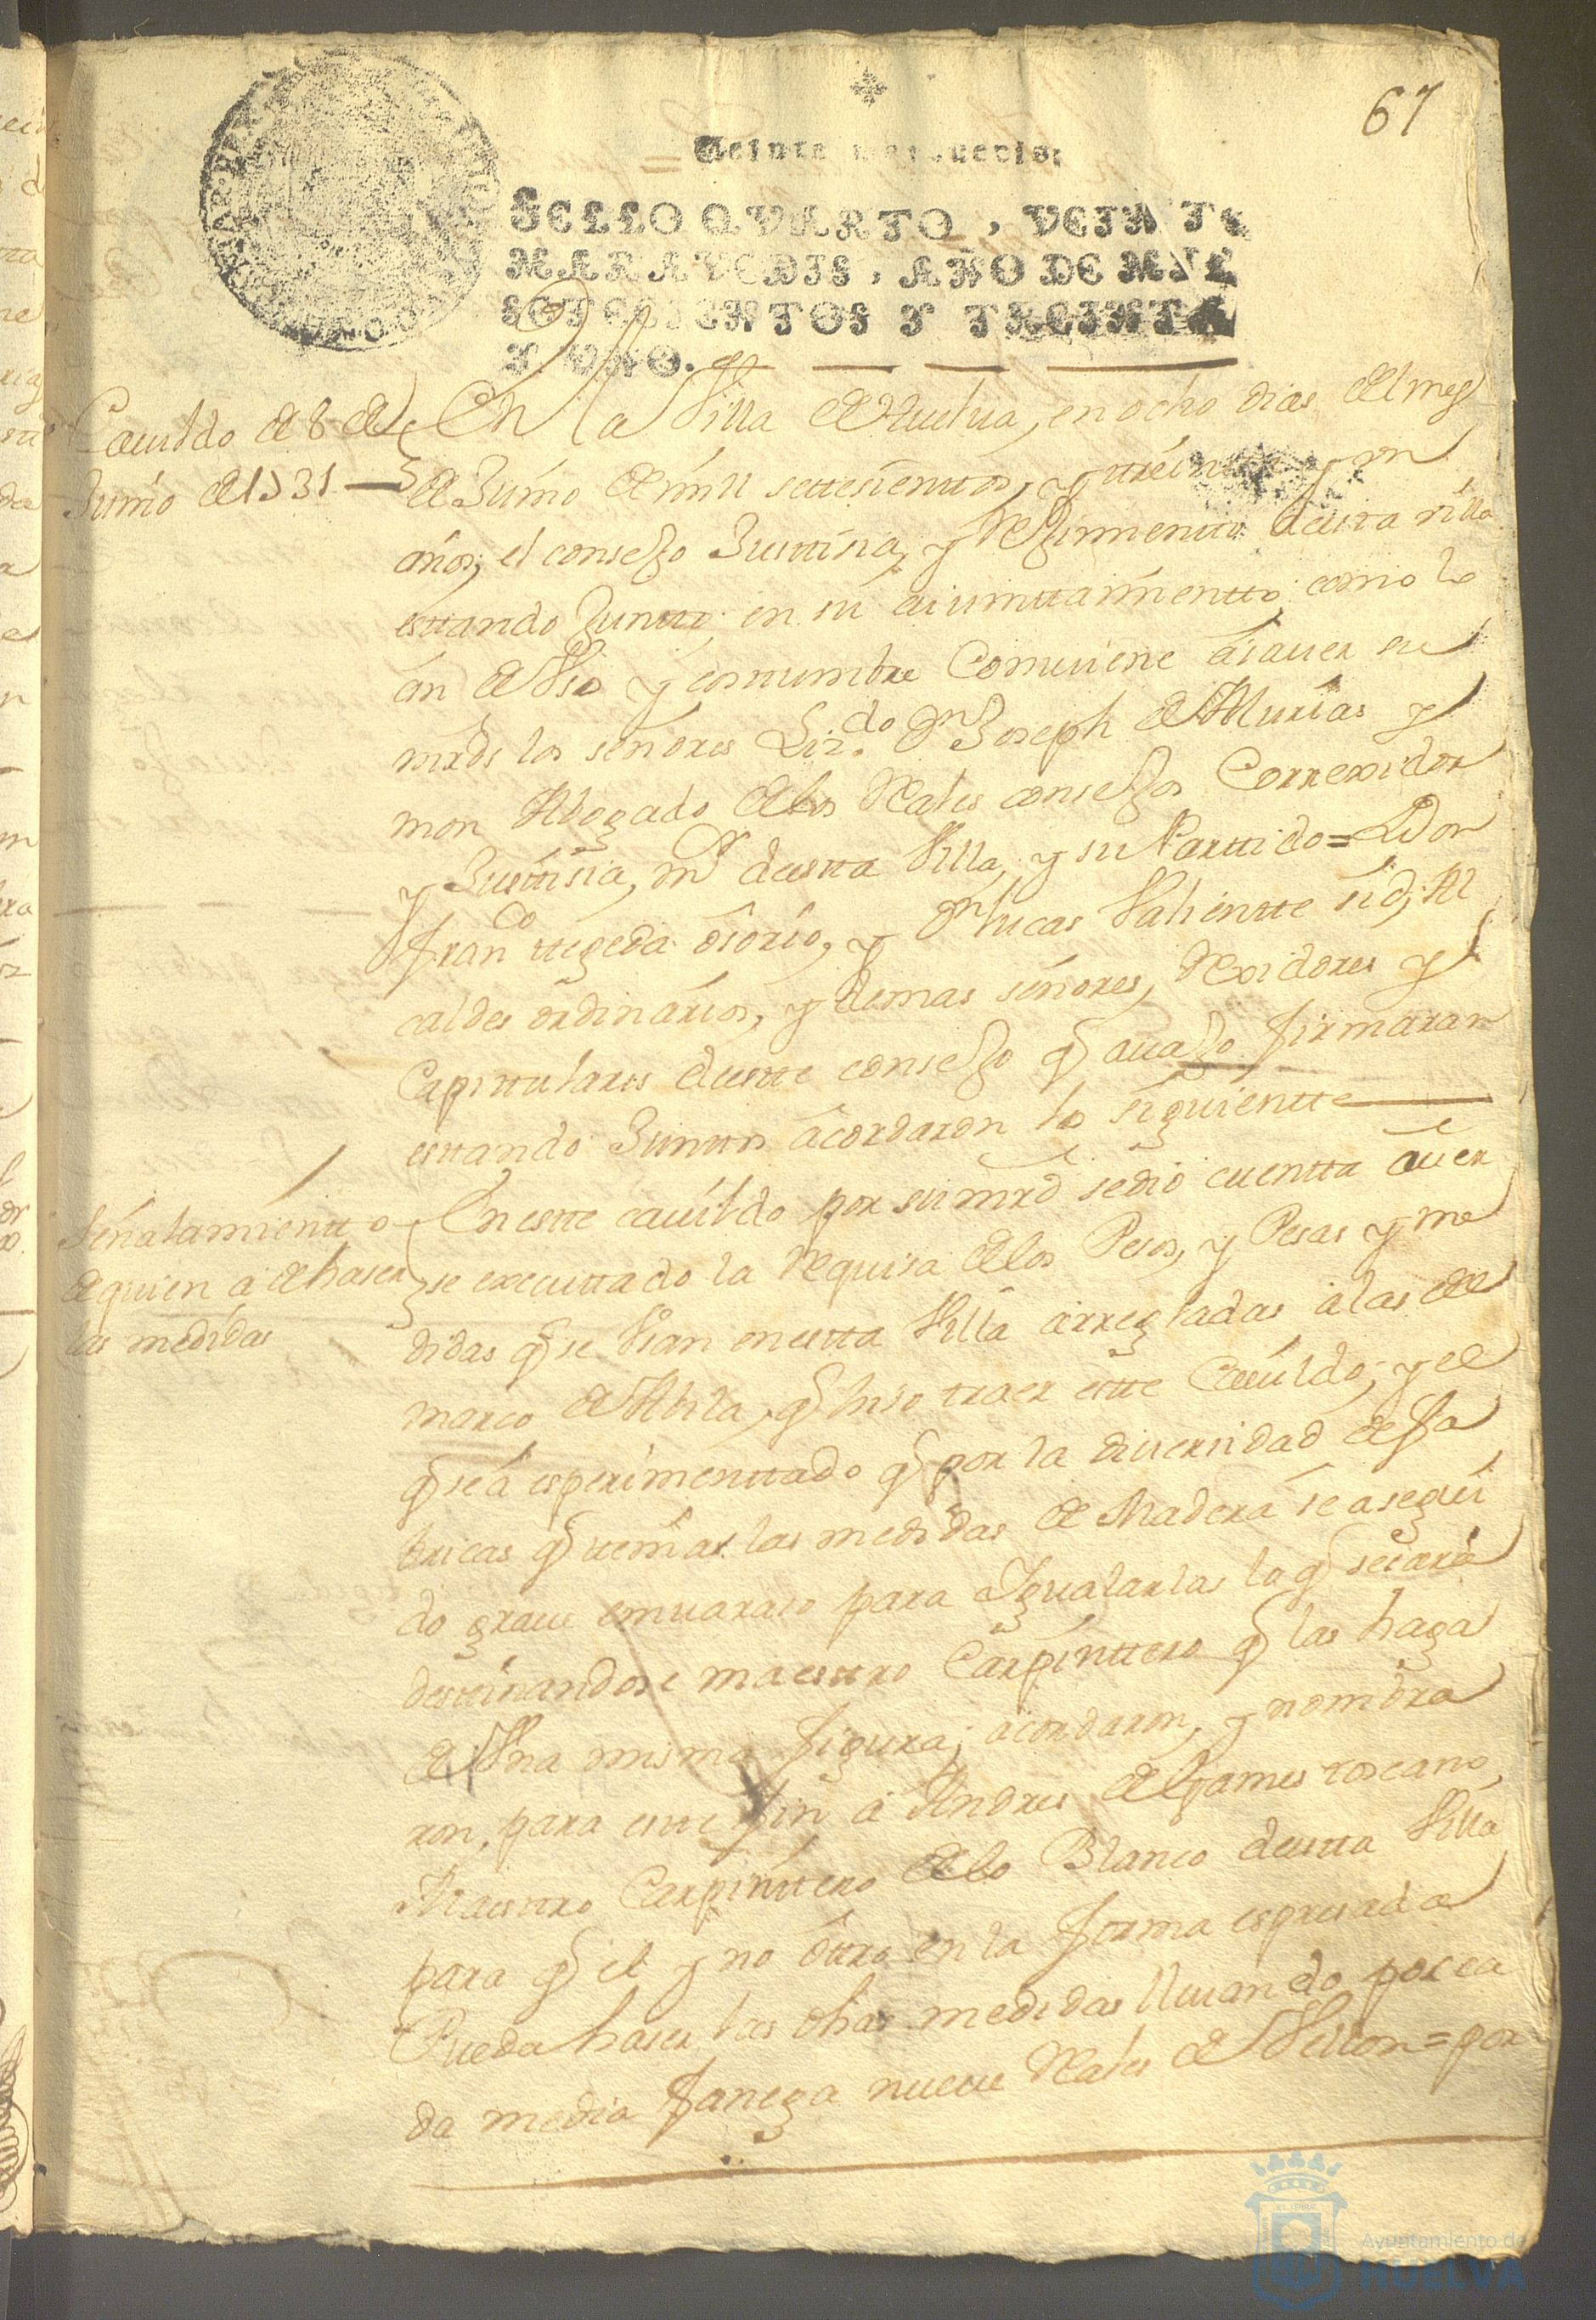 67
Veinte maravedis.
SELLO QVARTO, VEINTE
MARAVEDIS, AÑO DE MIL
SETECIENTOS Y TREINTA
Y UNO.
Cauildo de 8 de
Junio de 1731
En la Villa de Huelua, en ocho dias del mes
de Junio de mill settesienttos, y treinta y un
años, el consejo Justtisia, y Rejimientto destta villa
esttando Juntto en su aiunttamientto como lo
an de Vso y costtumbre Comuiene a sauer su
mrds los señores Lizdo. Dn Joseph de Murias y
mon Abogado de los Reales consejos Correxidor
y Justtisia mor destta Villa, y su Parttido = Don
Franco ttejeda osorio, y Dn lucas Valientte sid, Al
caldes ordinarios, y demas señores, Rexidores y
Capittulares destte consejo q auajo firmaran
esttando Junttos acordaron lo siguientte
Señalamientto
de quien a de haser
las medidas
En estte cauildo por su mrd se dio cuentta auer
se executtado la Requisa de los Pesos, y Pesas y me
didas q se Vsan en estta Villa arregladas a las del
marco de Abila, q hiso traer estte Cauildo, y el
q se a esperimenttado q por la diuersidad de fa
bricas q ttenian las medidas de Madera se a segui
do graue emuaraso para Igualarlas lo q sesara
desttinandose maesttro Carpinttero q las haga
de Vna misma figura; acordaron, y nombra
ron, para estte fin a Andres de lgames toscano,
Maesttro Carpinttero de lo Blanco destta Villa
para q el y no ottro en la forma espresada
Pueda haser las dhas medidas lleuando por ca
da media fanega nueue Reales de Vellon = por
Ayuntamiento de
HUELVA